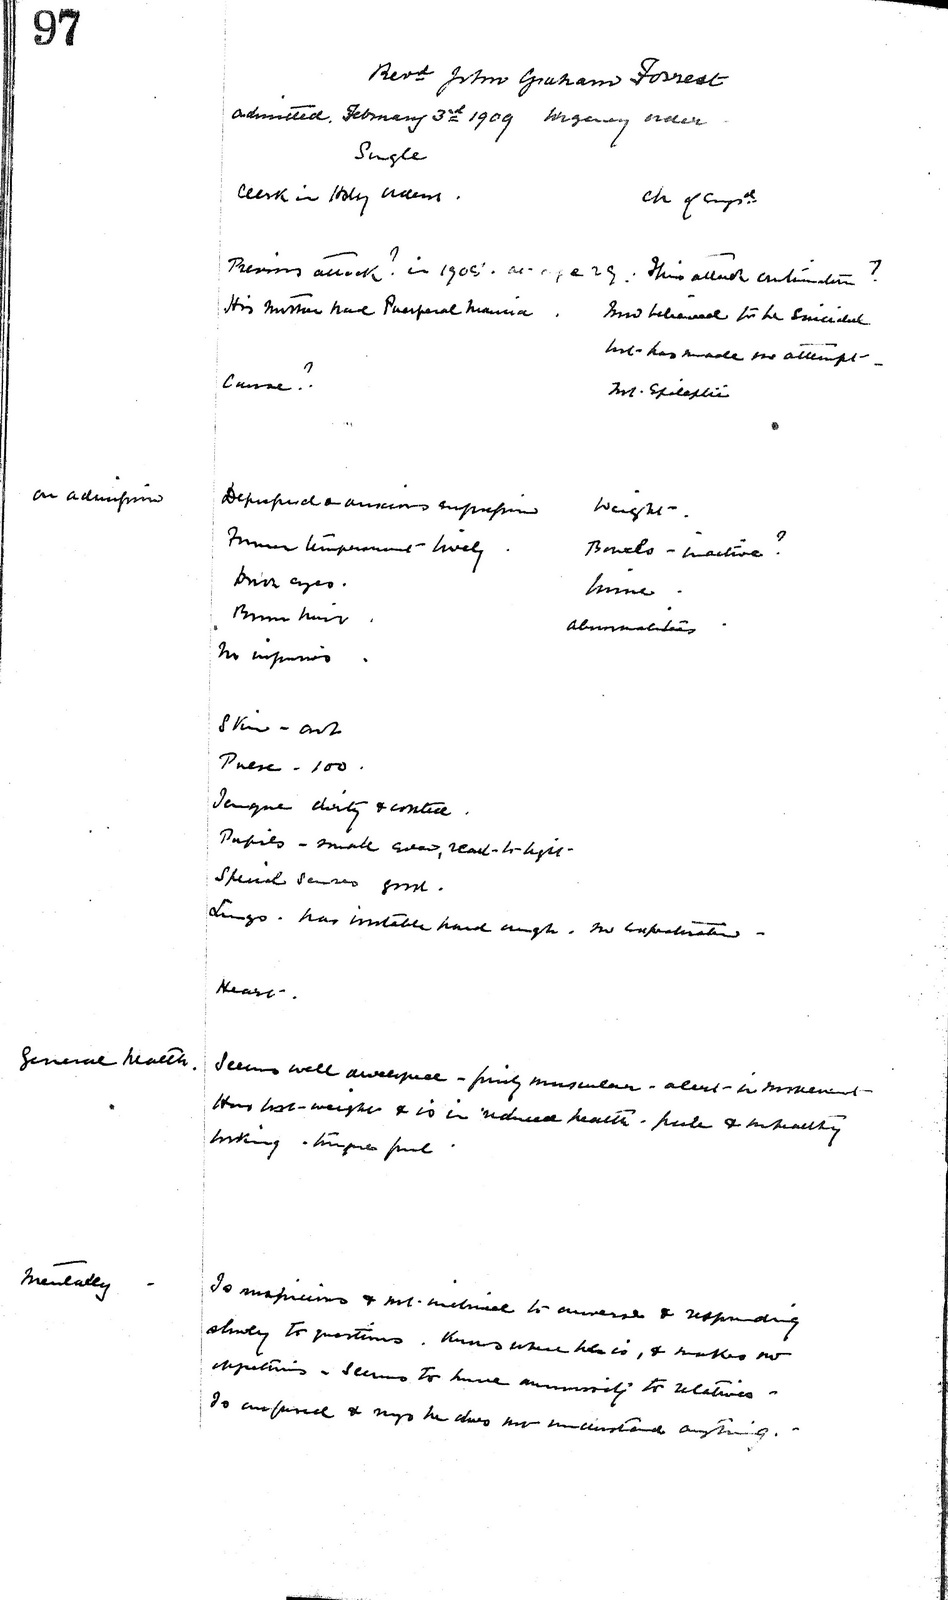 97
Revd John Graham Forrest
admitted. February 3rd 1909 Urgency order
Single
Clerk in Holy Orders. Ch of Engd
Previous attack? in 1905. at age 29. This attack duration?
His mother had Puerperal Mania. Not believed to be suicidal
but has made no attempt -
Cause? Not Epileptic
on admission
Depressed & anxious expression Weight -.
Former temperament - lively. Bowels - inactive?
eyes. Urine.
Brown hair. Abnormalities.
No injuries.
Skin -
Pulse - 100.
Tongue dirty & coated.
Pupils - small equal, react to light -
Special Senses good.
Lungs. has irritable hard cough. no expectoration -
Heart -.
General health.
Seems well developed - fairly muscular - alert in movement -
Has lost weight & is in reduced health - pale & unhealthy
looking. tongue foul.
Mentally -
Is suspicious & not inclined to converse & responding
slowly to questions. Knows where he is, & makes no
objections - Seems to have animosity to relatives -
Is confused & says he does not understand anything. -